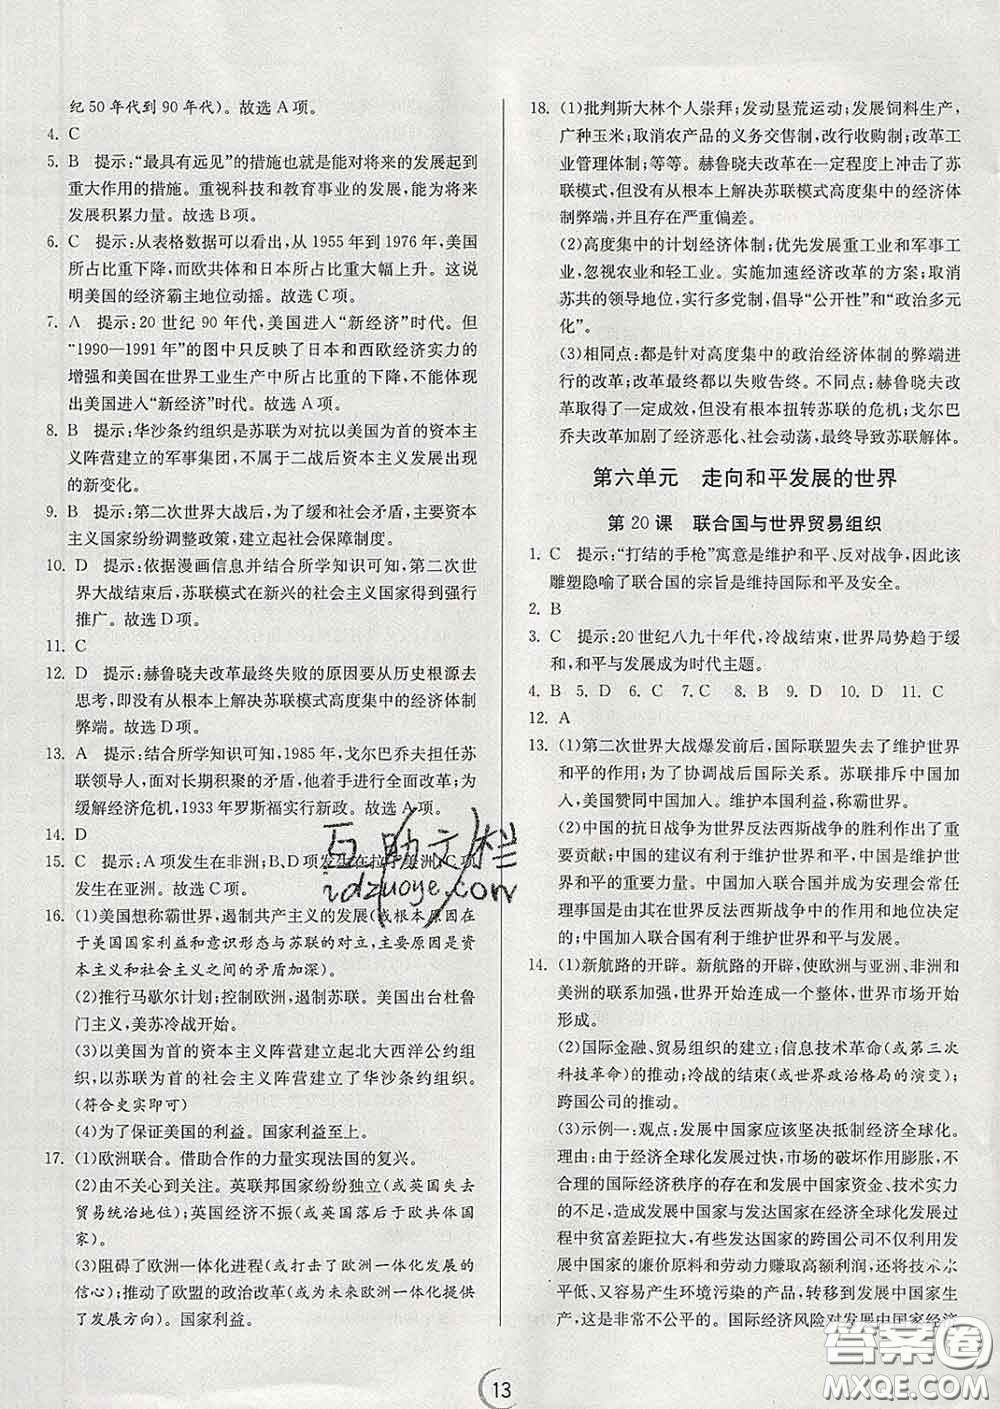 纪 50 年代到 90 年代)。故选 A 项。
4. C
5. B 提示:“最具有远见”的措施也就是能对将来的发展起到
重大作用的措施。重视科技和教育事业的发展,能为将来
发展积累力量。故选 B 项。
6. C 提示:从表格数据可以看出,从 1955 年到 1976 年,美国
所占比重下降,而欧共体和日本所占比重大幅上升。这说
明美国的经济霸主地位动摇。故选 C 项。
7. A 提示:20 世纪 90 年代,美国进入“新经济”时代。但
“1990—1991 年”的图中只反映了日本和西欧经济实力的
增强和美国在世界工业生产中所占比重的下降,不能体现
出美国进入“新经济”时代。故选 A 项。
8. B 提示:华沙条约组织是苏联为对抗以美国为首的资本主
义阵营建立的军事集团,不属于二战后资本主义发展出现
的新变化。
9. B 提示:第二次世界大战后,为了缓和社会矛盾,主要资本
主义国家纷纷调整政策,建立起社会保障制度。
10. D 提示:依据漫画信息并结合所学知识可知,第二次世
界大战结束后,苏联模式在新兴的社会主义国家得到强行
推广。故选 D 项。
11. C
12. D 提示:赫鲁晓夫改革最终失败的原因要从历史根源去
思考,即没有从根本上解决苏联模式高度集中的经济体制
弊端。故选 D 项。
13. A 提示:结合所学知识可知,1985 年,戈尔巴乔夫担任苏
联领导人,面对长期积聚的矛盾,他着手进行全面改革;为
缓解经济危机,1933 年罗斯福实行新政。故选 A 项。
14. D
15. C 提示:A 项发生在非洲;B、D 项发生在拉丁美洲;C 项
发生在亚洲。故选 C 项。
16. (1)美国想称霸世界,遏制共产主义的发展(或根本原因在
于美国国家利益和意识形态与苏联的对立,主要原因是资
本主义和社会主义之间的矛盾加深)。
(2)推行马歇尔计划;控制欧洲,遏制苏联。美国出台杜鲁
门主义,美苏冷战开始。
(3)以美国为首的资本主义阵营建立起北大西洋公约组
织,以苏联为首的社会主义阵营建立了华沙条约组织。
(符合史实即可)
(4)为了保证美国的利益。国家利益至上。
17. (1)欧洲联合。借助合作的力量实现法国的复兴。
(2)由不关心到关注。英联邦国家纷纷独立(或英国失去
贸易统治地位);英国经济不振(或英国落后于欧共体国
家)。
(3)阻碍了欧洲一体化进程(或打击了欧洲一体化发展的
信心);推动了欧盟的政治改革(或为未来欧盟发展提供
了发展方向)。国家利益。
18. (1)批判斯大林个人崇拜;发动垦荒运动;发展饲料生产,
广种玉米;取消农产品的义务交售制,改行收购制;改革工
业管理体制;等等。赫鲁晓夫改革在一定程度上冲击了苏
联模式,但没有从根本上解决苏联模式高度集中的经济体
制弊端,并且存在严重偏差。
(2)高度集中的计划经济体制;优先发展重工业和军事工
业,忽视农业和轻工业。实施加速经济改革的方案;取消
苏共的领导地位,实行多党制,倡导“公开性”和“政治多元
化”。
(3)相同点:都是针对高度集中的政治经济体制的弊端进
行的改革;改革最终都以失败告终。不同点:赫鲁晓夫改
革取得了一定成效,但没有根本扭转苏联的危机;戈尔巴
乔夫改革加剧了经济恶化、社会动荡,最终导致苏联解体。
第六单元 走向和平发展的世界
第 20 课 联合国与世界贸易组织
1. C 提示:“打结的手枪”寓意是维护和平、反对战争,因此该
雕塑隐喻了联合国的宗旨是维持国际和平及安全。
2. B
3. C 提示:20 世纪八九十年代,冷战结束,世界局势趋于缓
和,和平与发展成为时代主题。
4. B 5. D 6. D 7. C 8. C 9. B 10. D 11. C
12. A
13. (1)第二次世界大战爆发前后,国际联盟失去了维护世界
和平的作用;为了协调战后国际关系。苏联排斥中国加
入,美国赞同中国加入。维护本国利益,称霸世界。
(2)中国的抗日战争为世界反法西斯战争的胜利作出了重
要贡献;中国的建议有利于维护世界和平;中国是维护世
界和平的重要力量。中国加入联合国并成为安理会常任
理事国是由其在世界反法西斯战争中的作用和地位决定
的,中国加入联合国有利于维护世界和平与发展。
14. (1)新航路的开辟。新航路的开辟,使欧洲与亚洲、非洲和
美洲的联系加强,世界开始连成一个整体,世界市场开始
形成。
(2)国际金融、贸易组织的建立;信息技术革命(或第三次
科技革命)的推动;冷战的结束(或世界政治格局的演变);
跨国公司的推动。
(3)示例一:观点:发展中国家应该坚决抵制经济全球化。
理由:由于经济全球化发展过快,市场的破坏作用膨胀,不
合理的国际经济秩序的存在和发展中国家资金、技术实力
的不足,造成发展中国家与发达国家在经济全球化发展中
贫富差距拉大。有些发达国家的跨国公司不仅掠夺了发
展中国家的廉价原料和劳动力赚取高额利润,还将技术水
平低下、又容易产生环境污染的产品,转移到发展中国家生
产,这是非常不公平的。国际经济风险对发展中国家经济
互助文档
idzuoye.com
答案圈
MXQE.COM
13